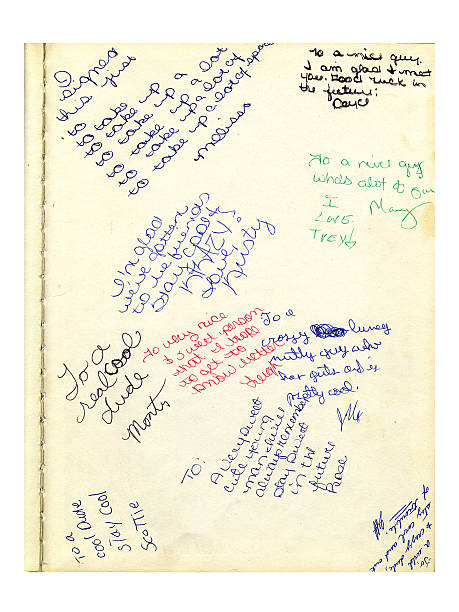 I signed
this just
to take up a lot
to take up a
to take up a
to take up a
to take up space
melissa
To a nice guy.
I am glad I met
you. Good luck in
the future:
To a nice guy
who's alot of fun
I
LOVE
TREY
Mary
I'm glad
we've gotten
to be friends
Stay cool &
KRAZY!
Love,
Kristy
To a
real cool
dude
Monty
To very nice
& sweet person
that I hope
to get to
know better
To a
crazy luney
nutty guy who
has girls and is
really cool.
Jeff
TO:
A very sweet
cute young
man who I will
always remember
stay sweet
in the
future
Rose
To a
cool Dude
Stay Cool
Scottie
To:
a wild
& crazy dude,
stay cool and out
of trouble.
Jeff